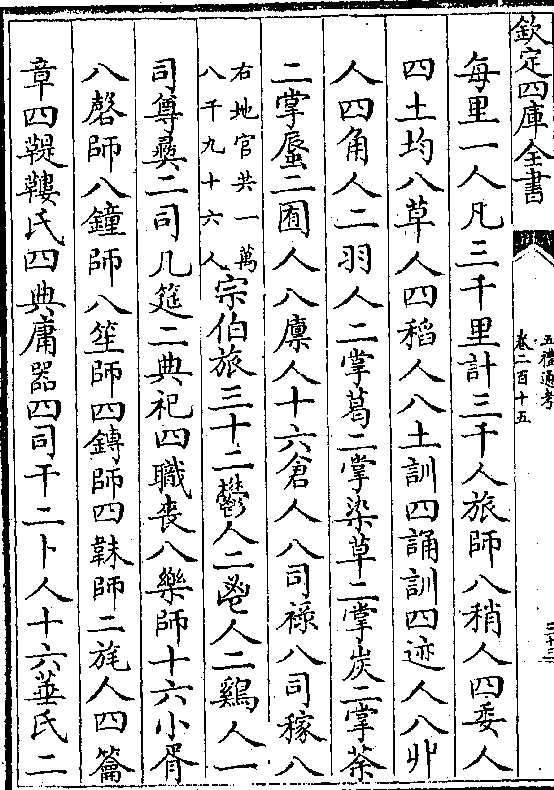 欽定四庫全書
五禮通考
卷二百十五
三十三
每里一人凡三千里計三千人旅師八稍人四委人
四土均八草人四稻人八土訓四誦訓四迹人八丱
人四角人二羽人二掌葛二掌染草二掌炭二掌荼
二掌蜃二囿人八廪人十六倉人八司祿八司稼八
右地官共一萬
八千九十六人
宗伯旅三十二鬱人二鬯人二雞人一
司尊彝二司几筵二典祀四職喪八樂師十六小胥
八磬師八鐘師八笙師四鎛師四韎師二旄人四籥
章四鞮鞻氏四典庸器四司干二卜人十六菙氏二